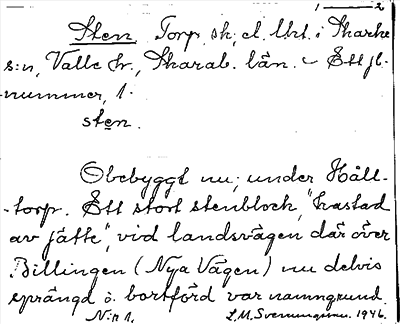 1 — 2
Sten Torp, sk, el. lht. i Skarke
s:n, Valle hr., Skarab. län. – Ett jb.
nummer, 1.
sten.
Obebyggt nu; under Håll-
torp. Ett stort stenblock, "kastad
av jätte", vid landsvägen där över
Billingen (Nya Vägen) nu delvis
sprängd o. bortförd var namngrund.
N:r 1. L.M. Svenungsson. 1946.